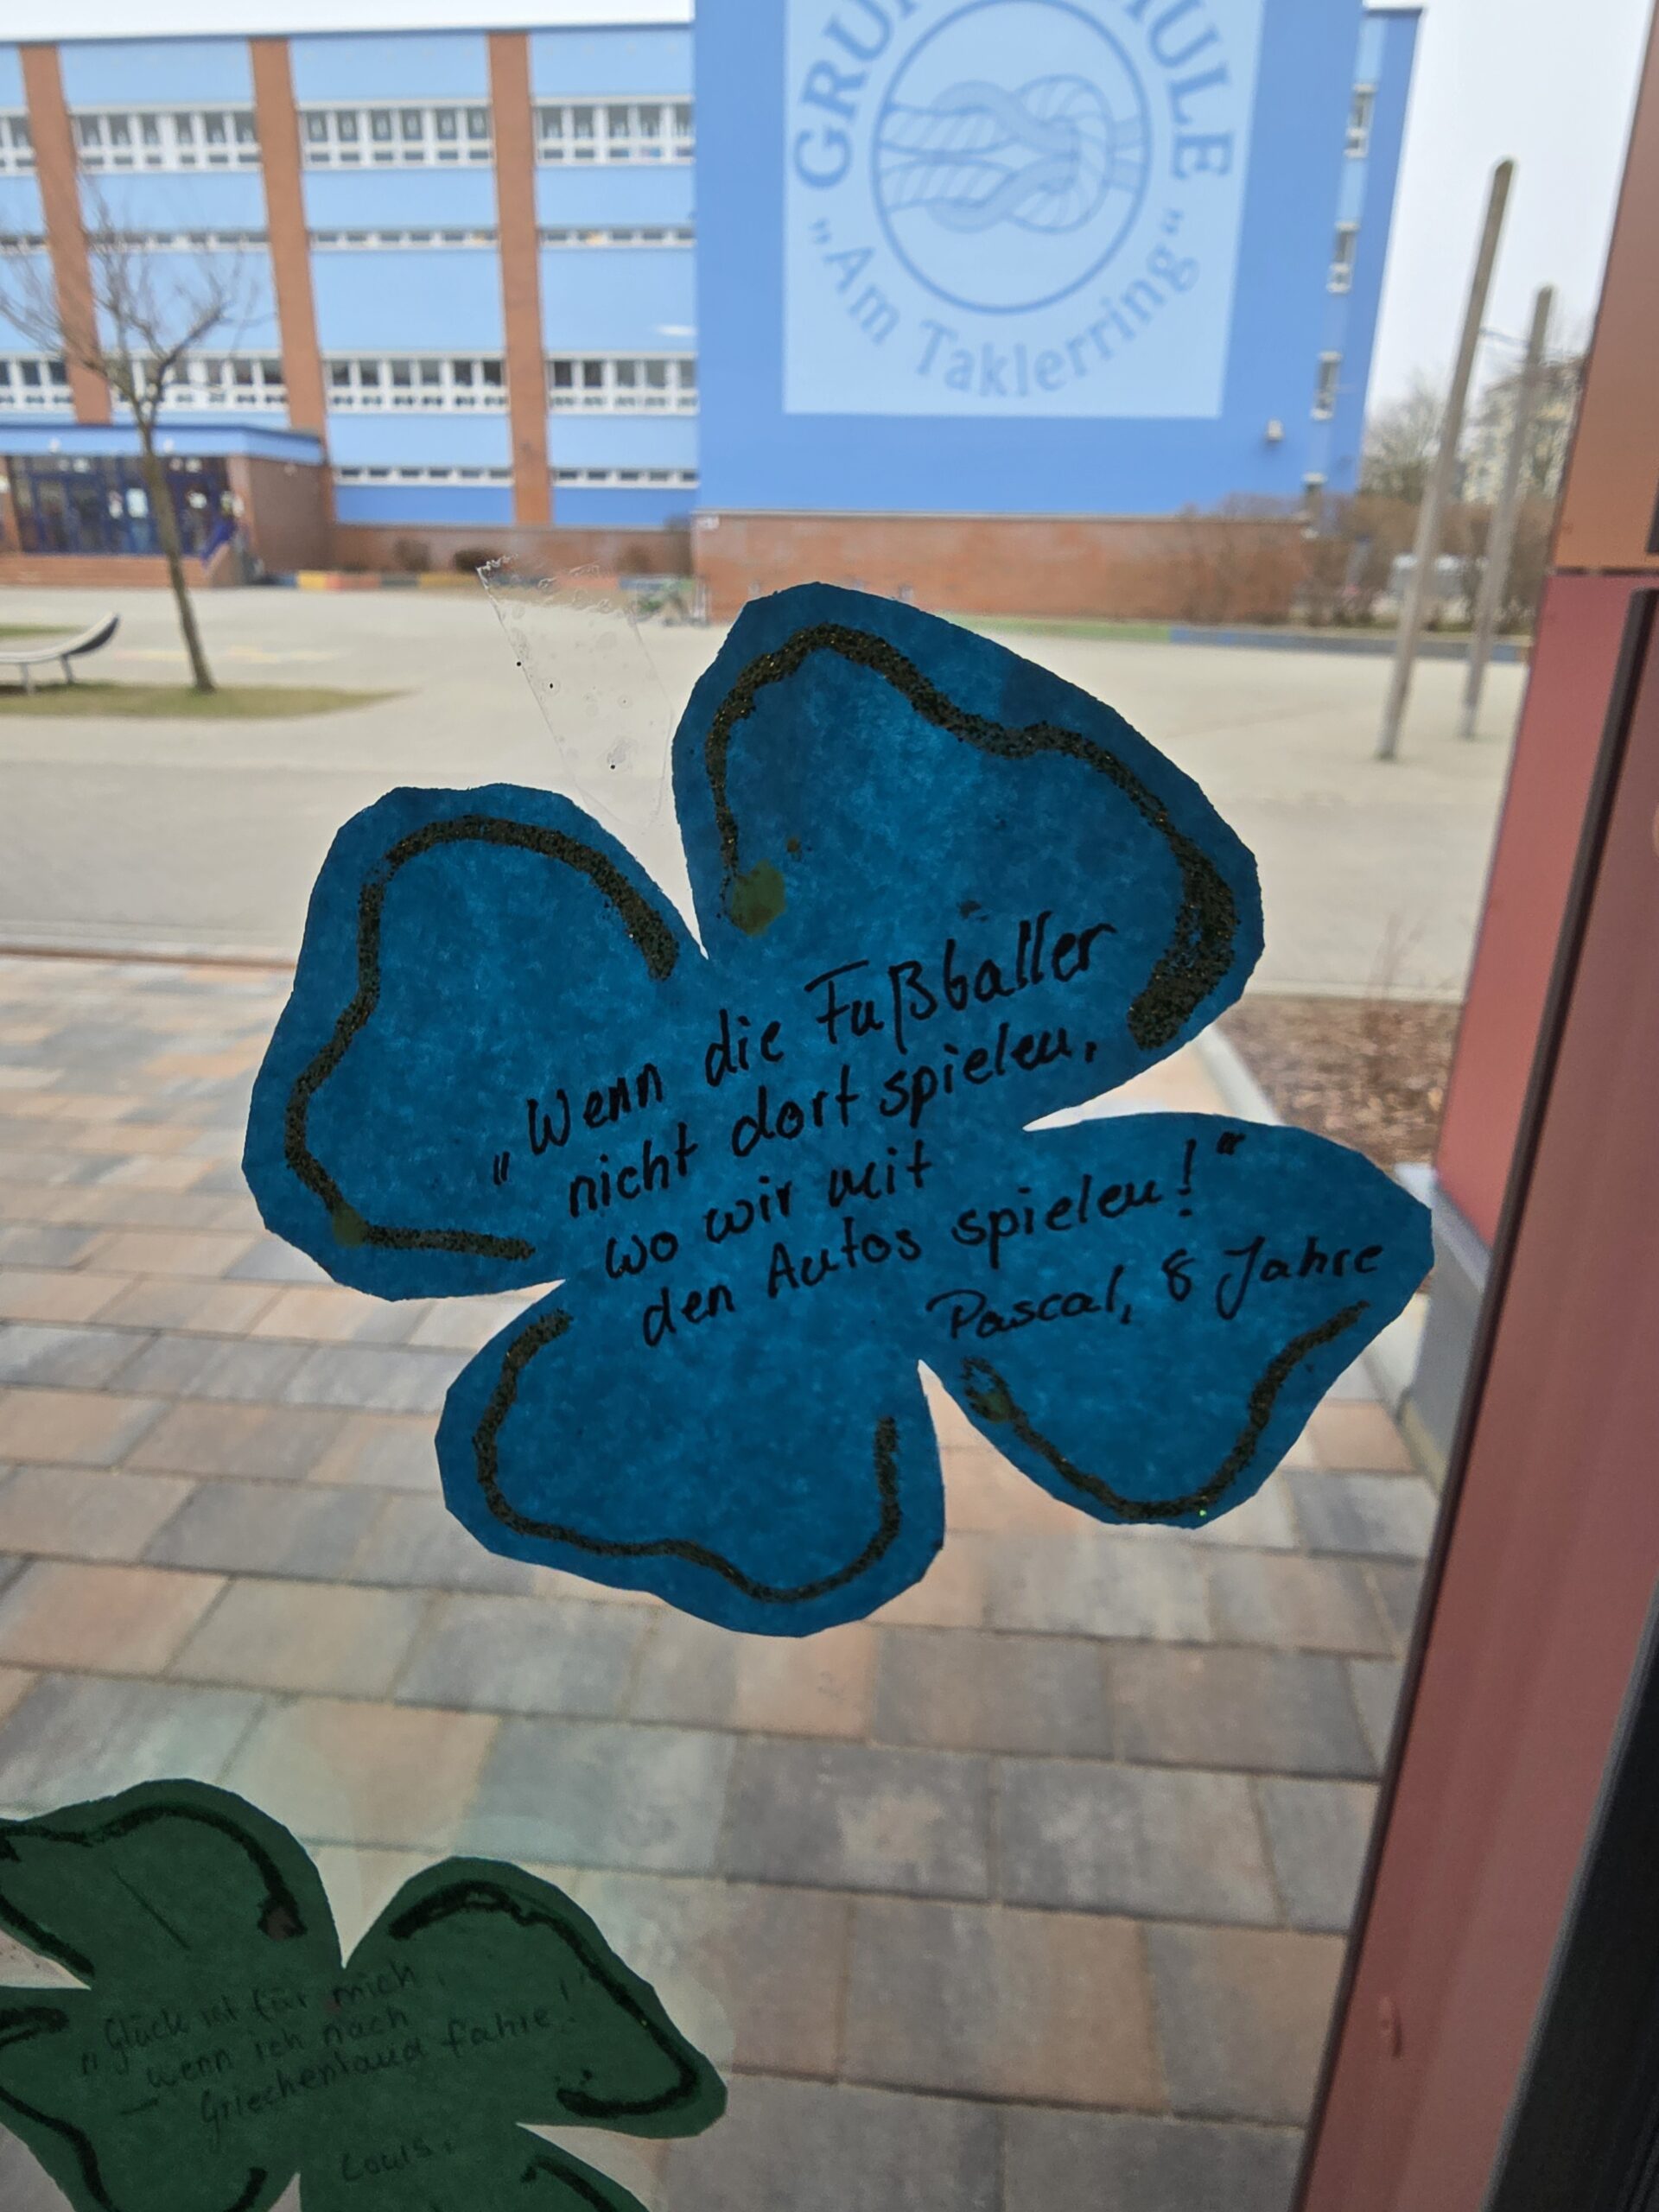 GRUN
HULE
„Am Taklerring“
„Wenn die Fußballer
nicht dort spielen,
wo wir mit
den Autos spielen!“
Pascal, 8 Jahre
„Glück ist für mich,
wenn ich nach
Griechenland fahre!“
Louis,